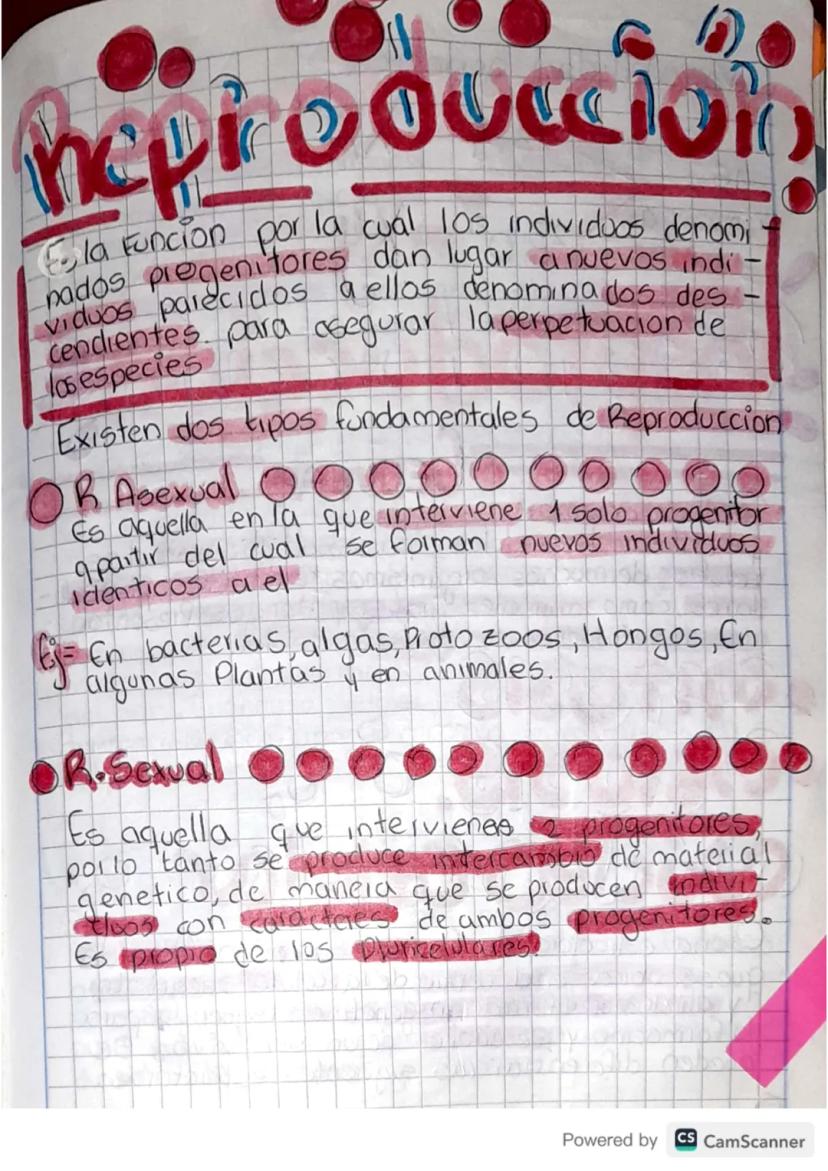 Reproduccion
Es la Funcion por la cual los individuos denomi-
nados progenitores dan lugar a nuevos indi-
viduos parecidos a ellos denominados des-
cendientes. para asegurar la perpetuacion de
las especies
Existen dos tipos fundamentales de Reproduccion
R Asexual
Es aquella en la que interviene 1 solo progenitor
apartir del cual se forman nuevos individuos
identicos a el
Ej= En bacterias, algas, Protozoos, Hongos, En
algunas Plantas y en animales.
R. Sexual
Es aquella que intervienes 2 progenitores,
por lo tanto se produce intercambio de material
genetico, de manera que se producen indivi-
duos con caracteres de ambos progenitores.
Es propio de los Pluricelulares.
Powered by CS CamScanner